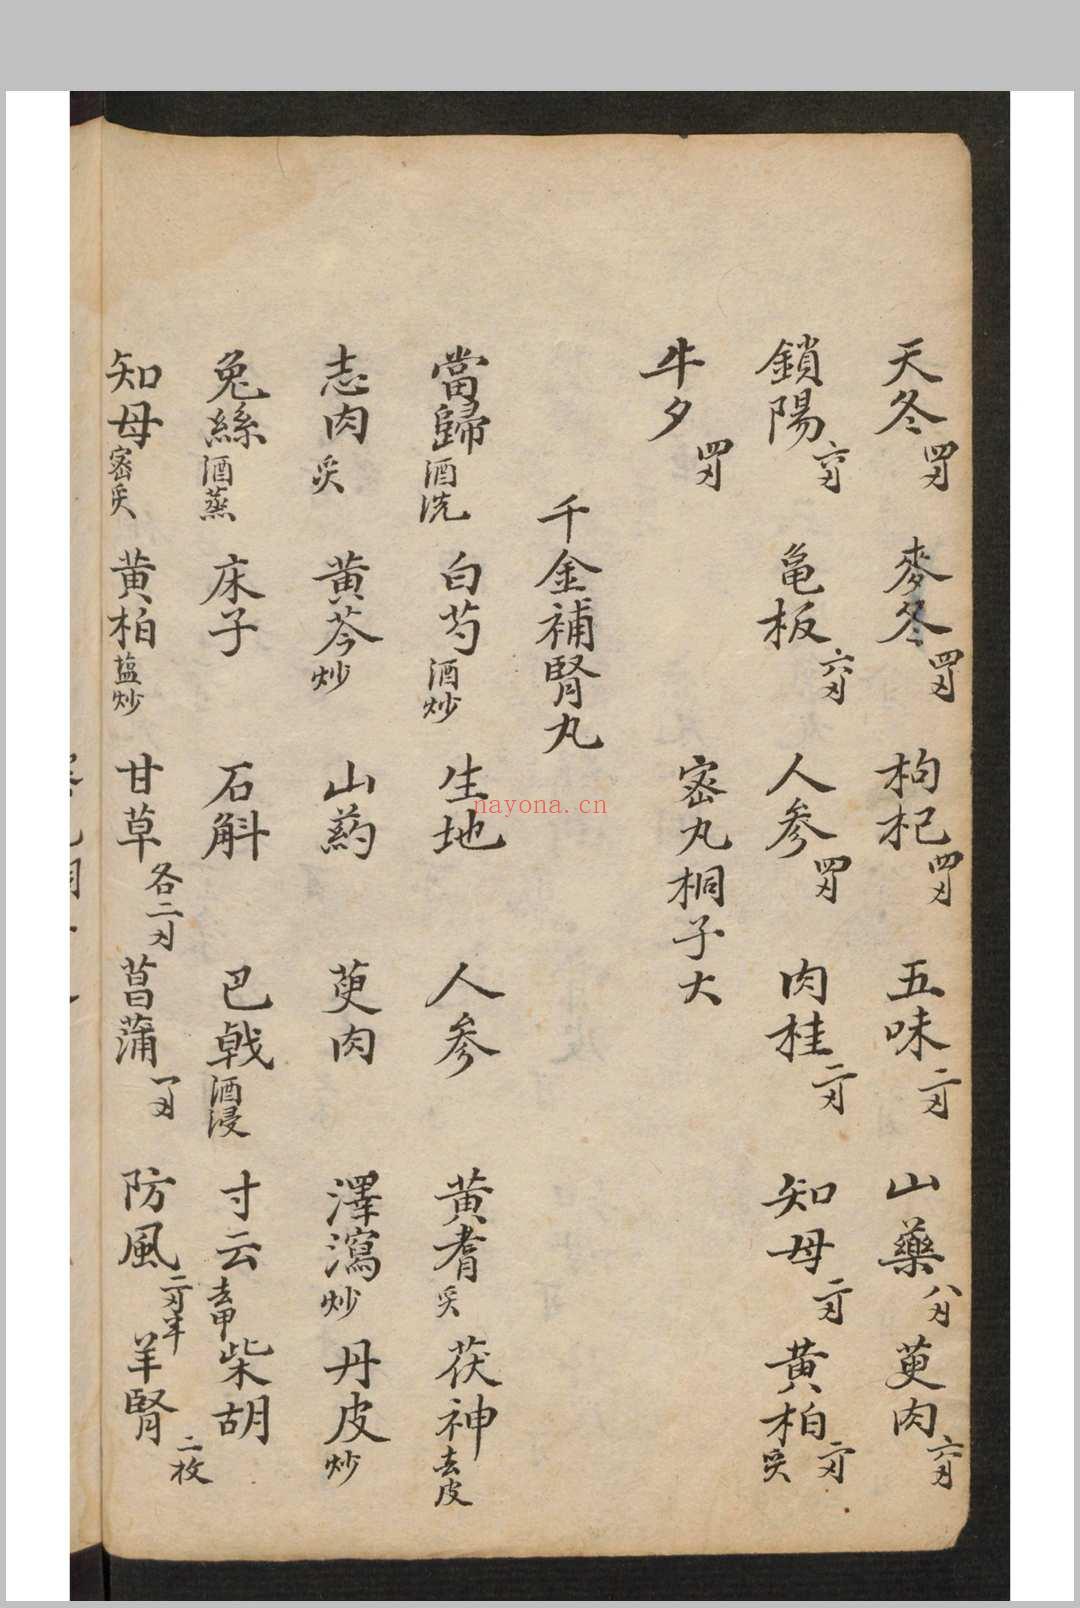 天冬四刄 麥冬四刄 枸杞四刄 五味二刄 山藥八刄 萸肉六刄
鎖陽六刄 亀板六刄 人参四刄 肉桂二刄 知母二刄 黄柏炙二刄
牛夕四刄 宻丸桐子大
千金補腎丸
當歸酒洗 白芍酒炒 生地 人参 黄耆炙 茯神去皮
志肉炙 黄芩炒 山药 萸肉 澤瀉炒 丹皮炒
兔絲酒蒸 床子 石斛 巴戟酒浸 寸云去甲 柴胡
知母宻炙 黄柏盐炒 甘草各二刄 菖蒲一刄 防風二刄半 羊腎二枚
nayona.cn